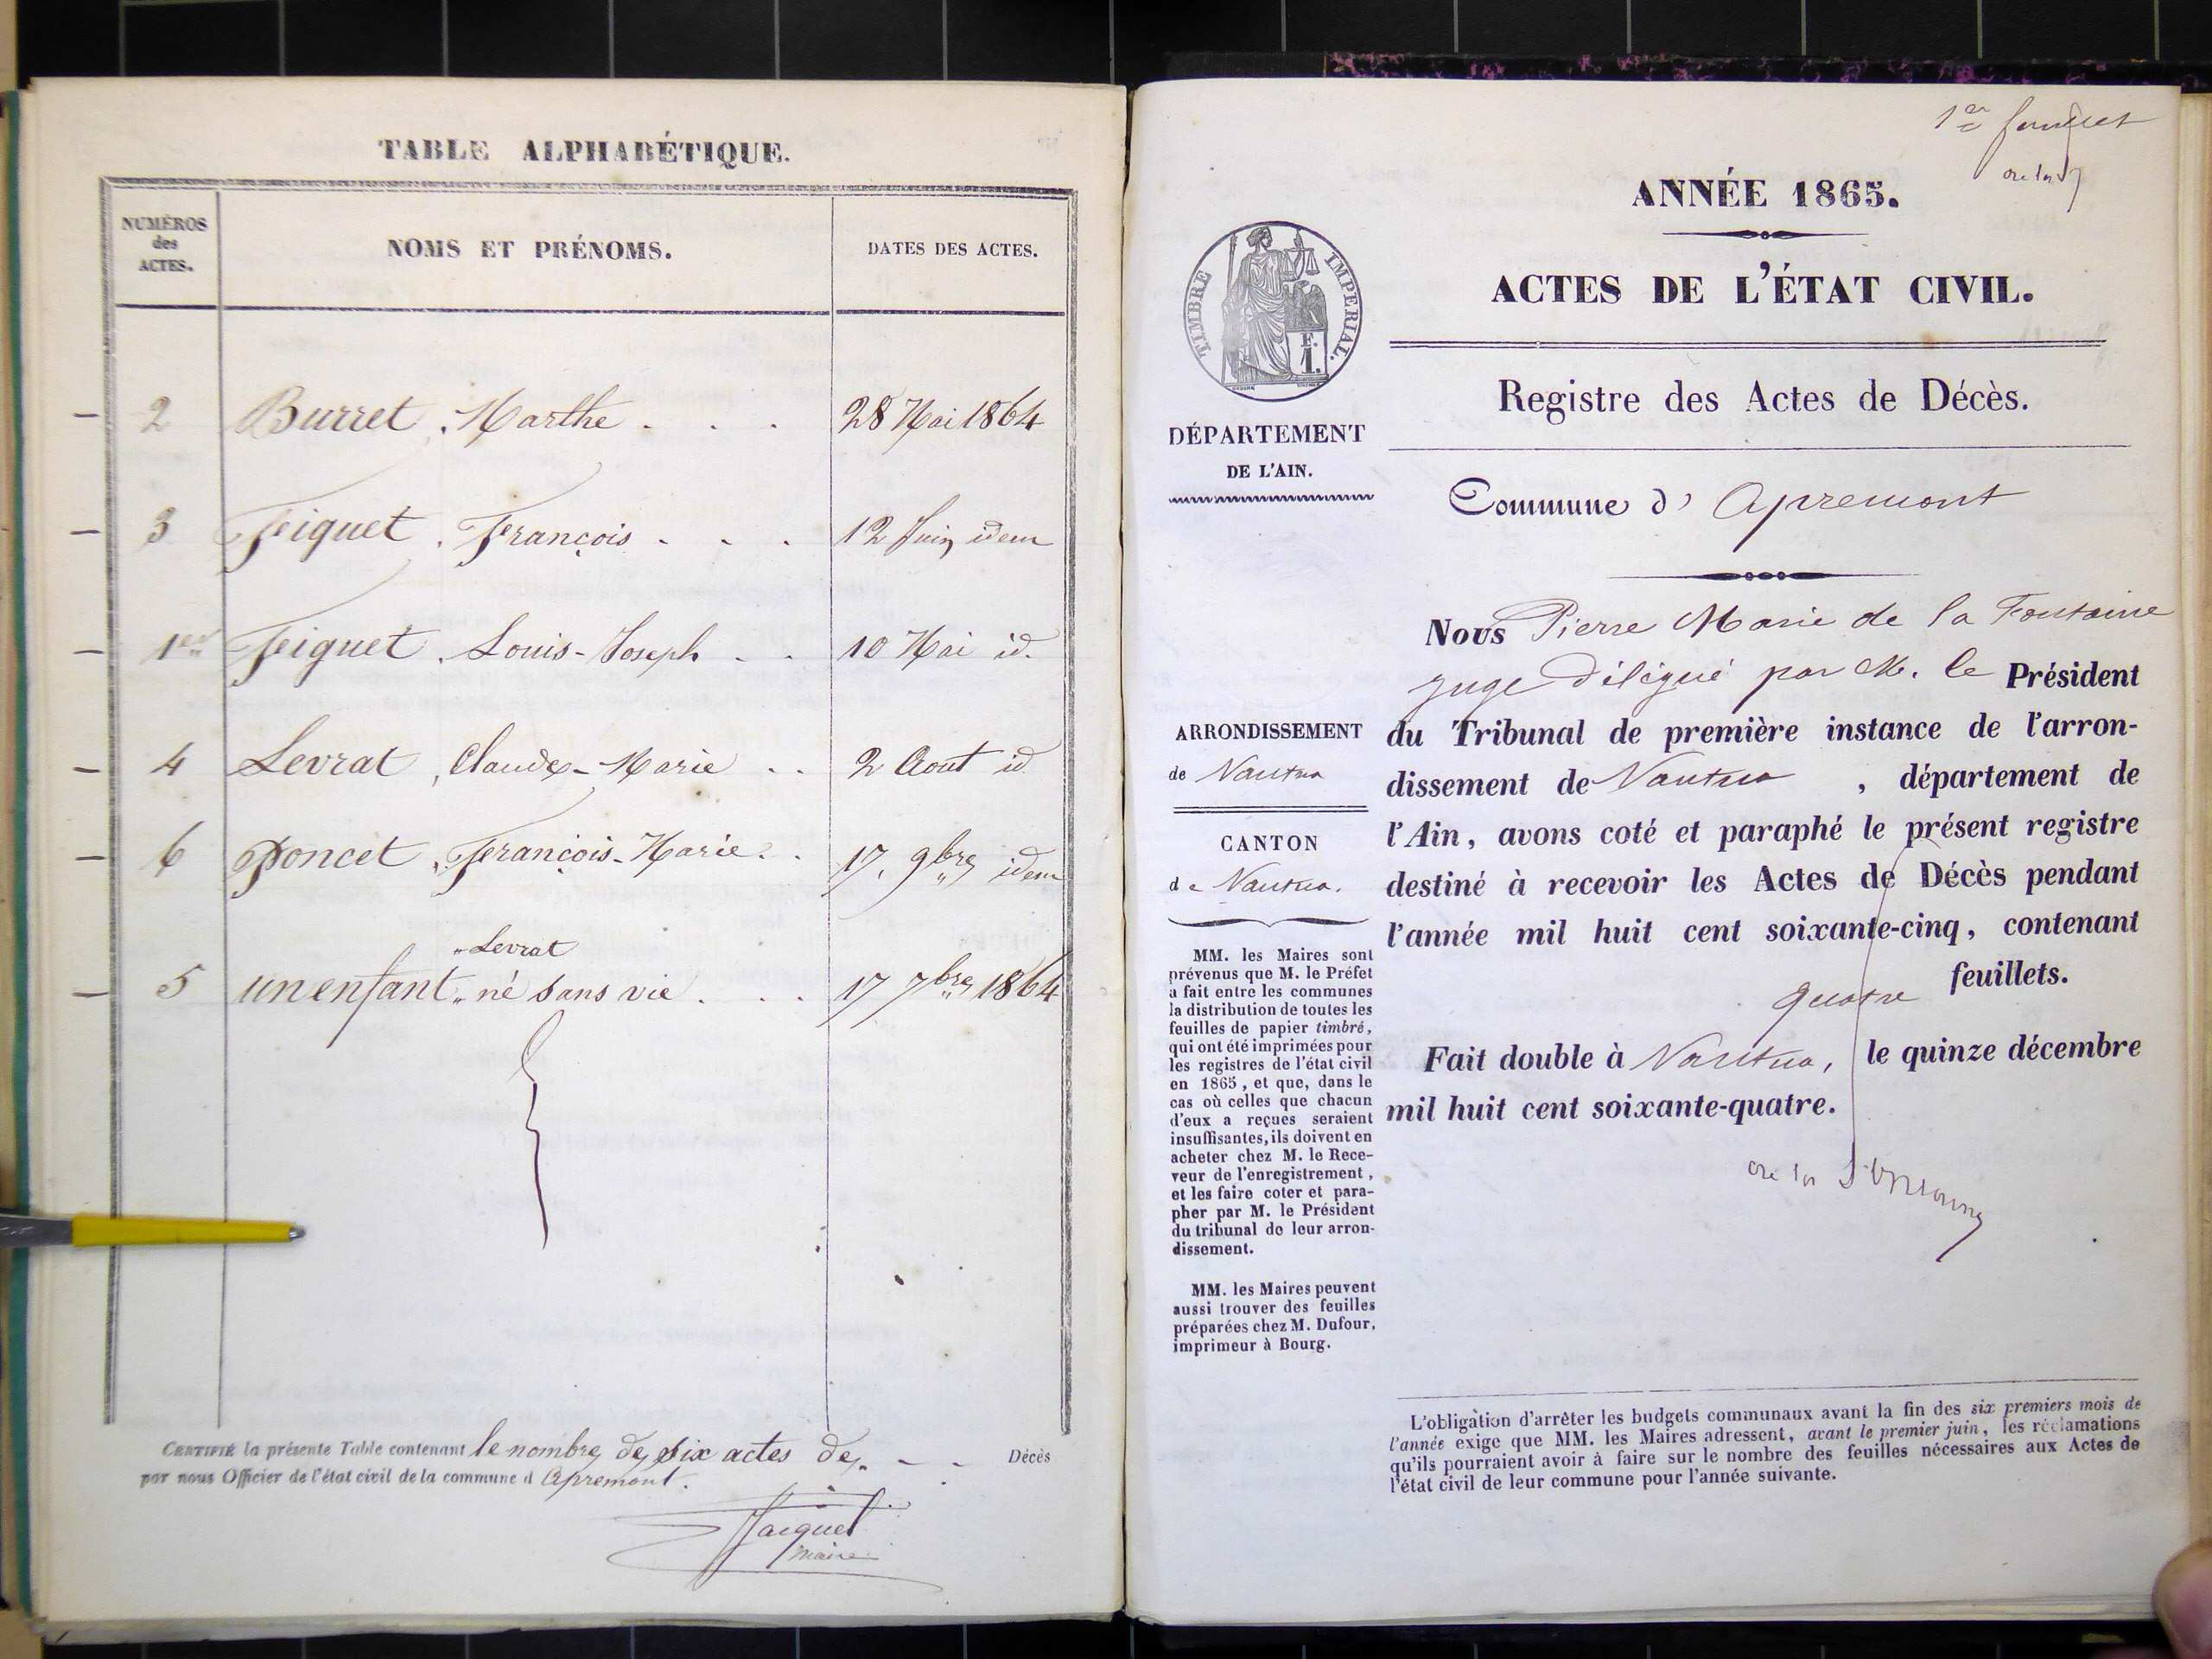 TABLE ALPHABÉTIQUE.
NUMÉROS
des
ACTES.
NOMS ET PRÉNOMS.
DATES DES ACTES.
2 Burret, Marthe . . . 28 Mai 1864
3 Figuet, François . . . 12 Juin idem
1er Figuet, Louis-Joseph . . 10 Mai id.
4 Levrat, Claude-Marie . . 2 Aout id
6 Poncet, François-Marie . . 17. 9bre idem
"Levrat
5 un enfant " né sans vie . . . 17 7bre 1864
CERTIFIÉ la présente Table contenant le nombre de six actes de - - Décès
par nous Officier de l'état civil de la commune d Apremont.
Jacquet
maire
1er feuillet
ANNÉE 1865.
TIMBRE IMPERIAL.
E.
1.
ACTES DE L'ÉTAT CIVIL.
Registre des Actes de Décès.
DÉPARTEMENT
DE L'AIN.
Commune d' Apremont
Nous Pierre Marie de la Fontaine
juge délégué par M. le Président
du Tribunal de première instance de l'arron-
dissement de Nantua , département de
l'Ain, avons coté et paraphé le présent registre
destiné à recevoir les Actes de Décès pendant
l'année mil huit cent soixante-cinq, contenant
quatre feuillets.
Fait double à Nantua, le quinze décembre
mil huit cent soixante-quatre.
ARRONDISSEMENT
de Nantua
CANTON
de Nantua.
MM. les Maires sont
prévenus que M. le Préfet
a fait entre les communes
la distribution de toutes les
feuilles de papier timbré,
qui ont été imprimées pour
les registres de l'état civil
en 1865, et que, dans le
cas où celles que chacun
d'eux a reçues seraient
insuffisantes, ils doivent en
acheter chez M. le Rece-
veur de l'enregistrement,
et les faire coter et para-
pher par M. le Président
du tribunal de leur arron-
dissement.
MM. les Maires peuvent
aussi trouver des feuilles
préparées chez M. Dufour,
imprimeur à Bourg.
L'obligation d'arrêter les budgets communaux avant la fin des six premiers mois de
l'année exige que MM. les Maires adressent, avant le premier juin, les réclamations
qu'ils pourraient avoir à faire sur le nombre des feuilles nécessaires aux Actes de
l'état civil de leur commune pour l'année suivante.